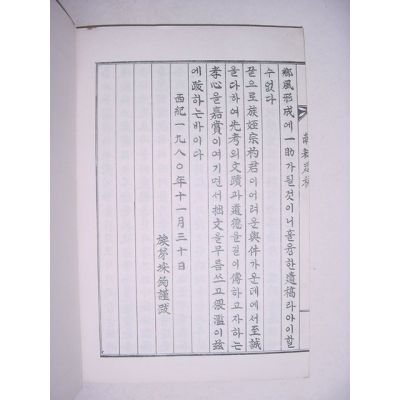 鄕風形成에一助가될것이니훌융한遺稿라아이할
수없다
끝으로族姪宗杓君이어려운與件가운데에서至誠
을다하여先考의文蹟과遺德을길이傳하고자하는
孝心을嘉賞이여기면서拙文을무릅쓰고猥濫이玆
에跋하는바이다
西紀一九八〇年十一月三十日
族弟 謹跋
遺稿